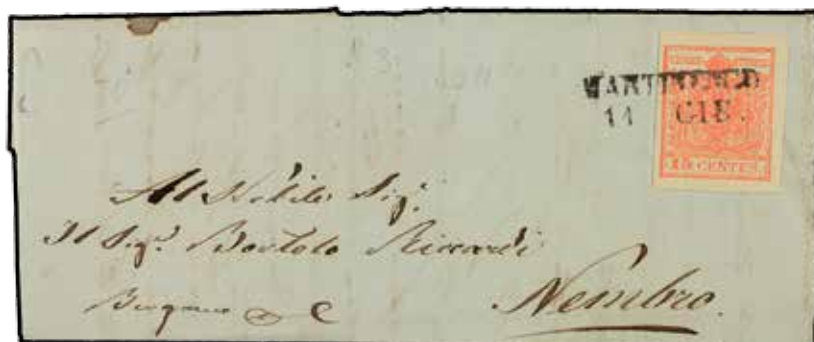 MARTINENGO
11 GIU.
15 CENTES.
Al Nobile Sigr.
Il Sigr. Bortolo Riccardi
Bergamo
Nembro.